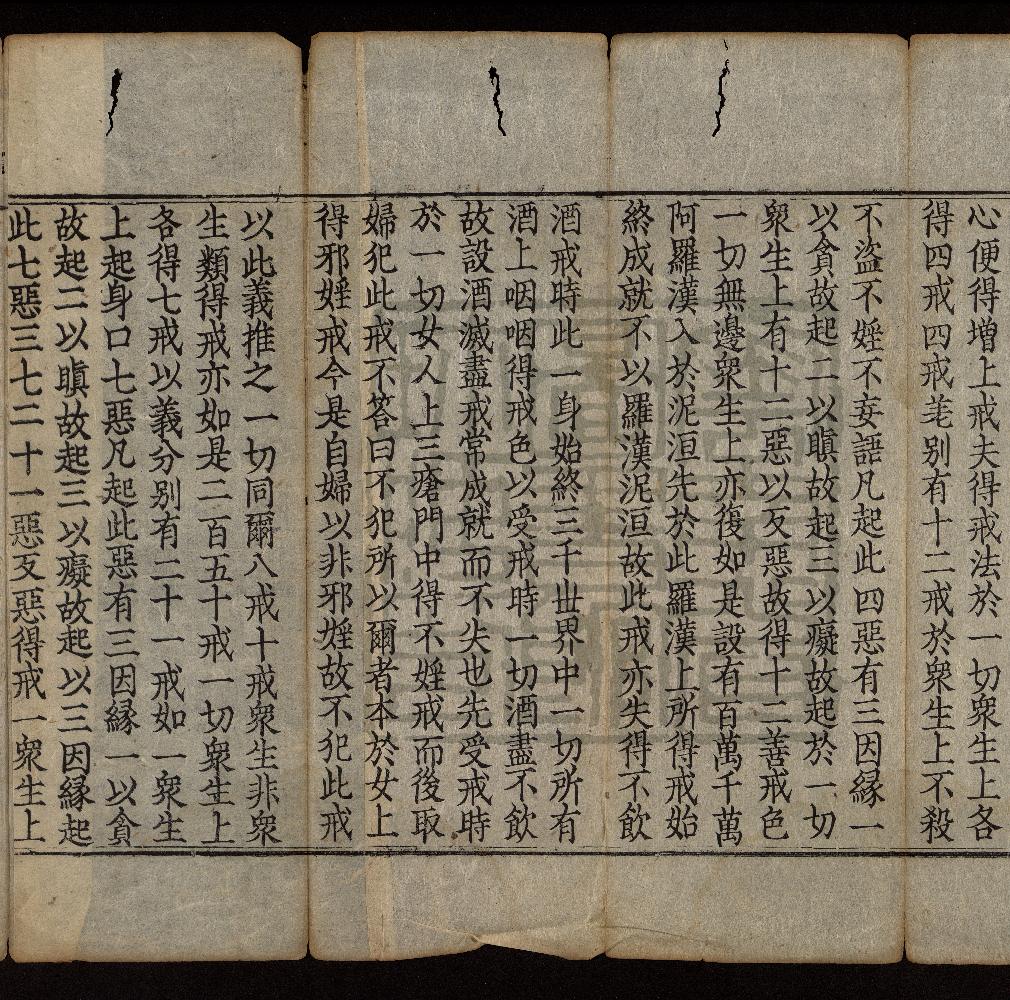 心便得増上戒夫得戒法於一切衆生上各
得四戒四戒差别有十二戒於衆生上不殺
不盜不婬不妄語凡起此四惡有三因縁一
以貪故起二以瞋故起三以癡故起於一切
衆生上有十二惡以反惡故得十二善戒色
一切無邊衆生上亦復如是設有百萬千萬
阿羅漢入於泥洹先於此羅漢上所得戒始
終成就不以羅漢泥洹故此戒亦失得不飲
酒戒時此一身始終三千世界中一切所有
酒上咽咽得戒色以受戒時一切酒盡不飲
故設酒滅盡戒常成就而不失也先受戒時
於一切女人上三瘡門中得不婬戒而後取
婦犯此戒不答曰不犯所以爾者本於女上
得邪婬戒今是自婦以非邪婬故不犯此戒
以此義推之一切同爾八戒十戒衆生非衆
生類得戒亦如是二百五十戒一切衆生上
各得七戒以義分别有二十一戒如一衆生
上起身口七惡凡起此惡有三因縁一以貪
故起二以瞋故起三以癡故起以三因縁起
此七惡三七二十一惡反惡得戒一衆生上